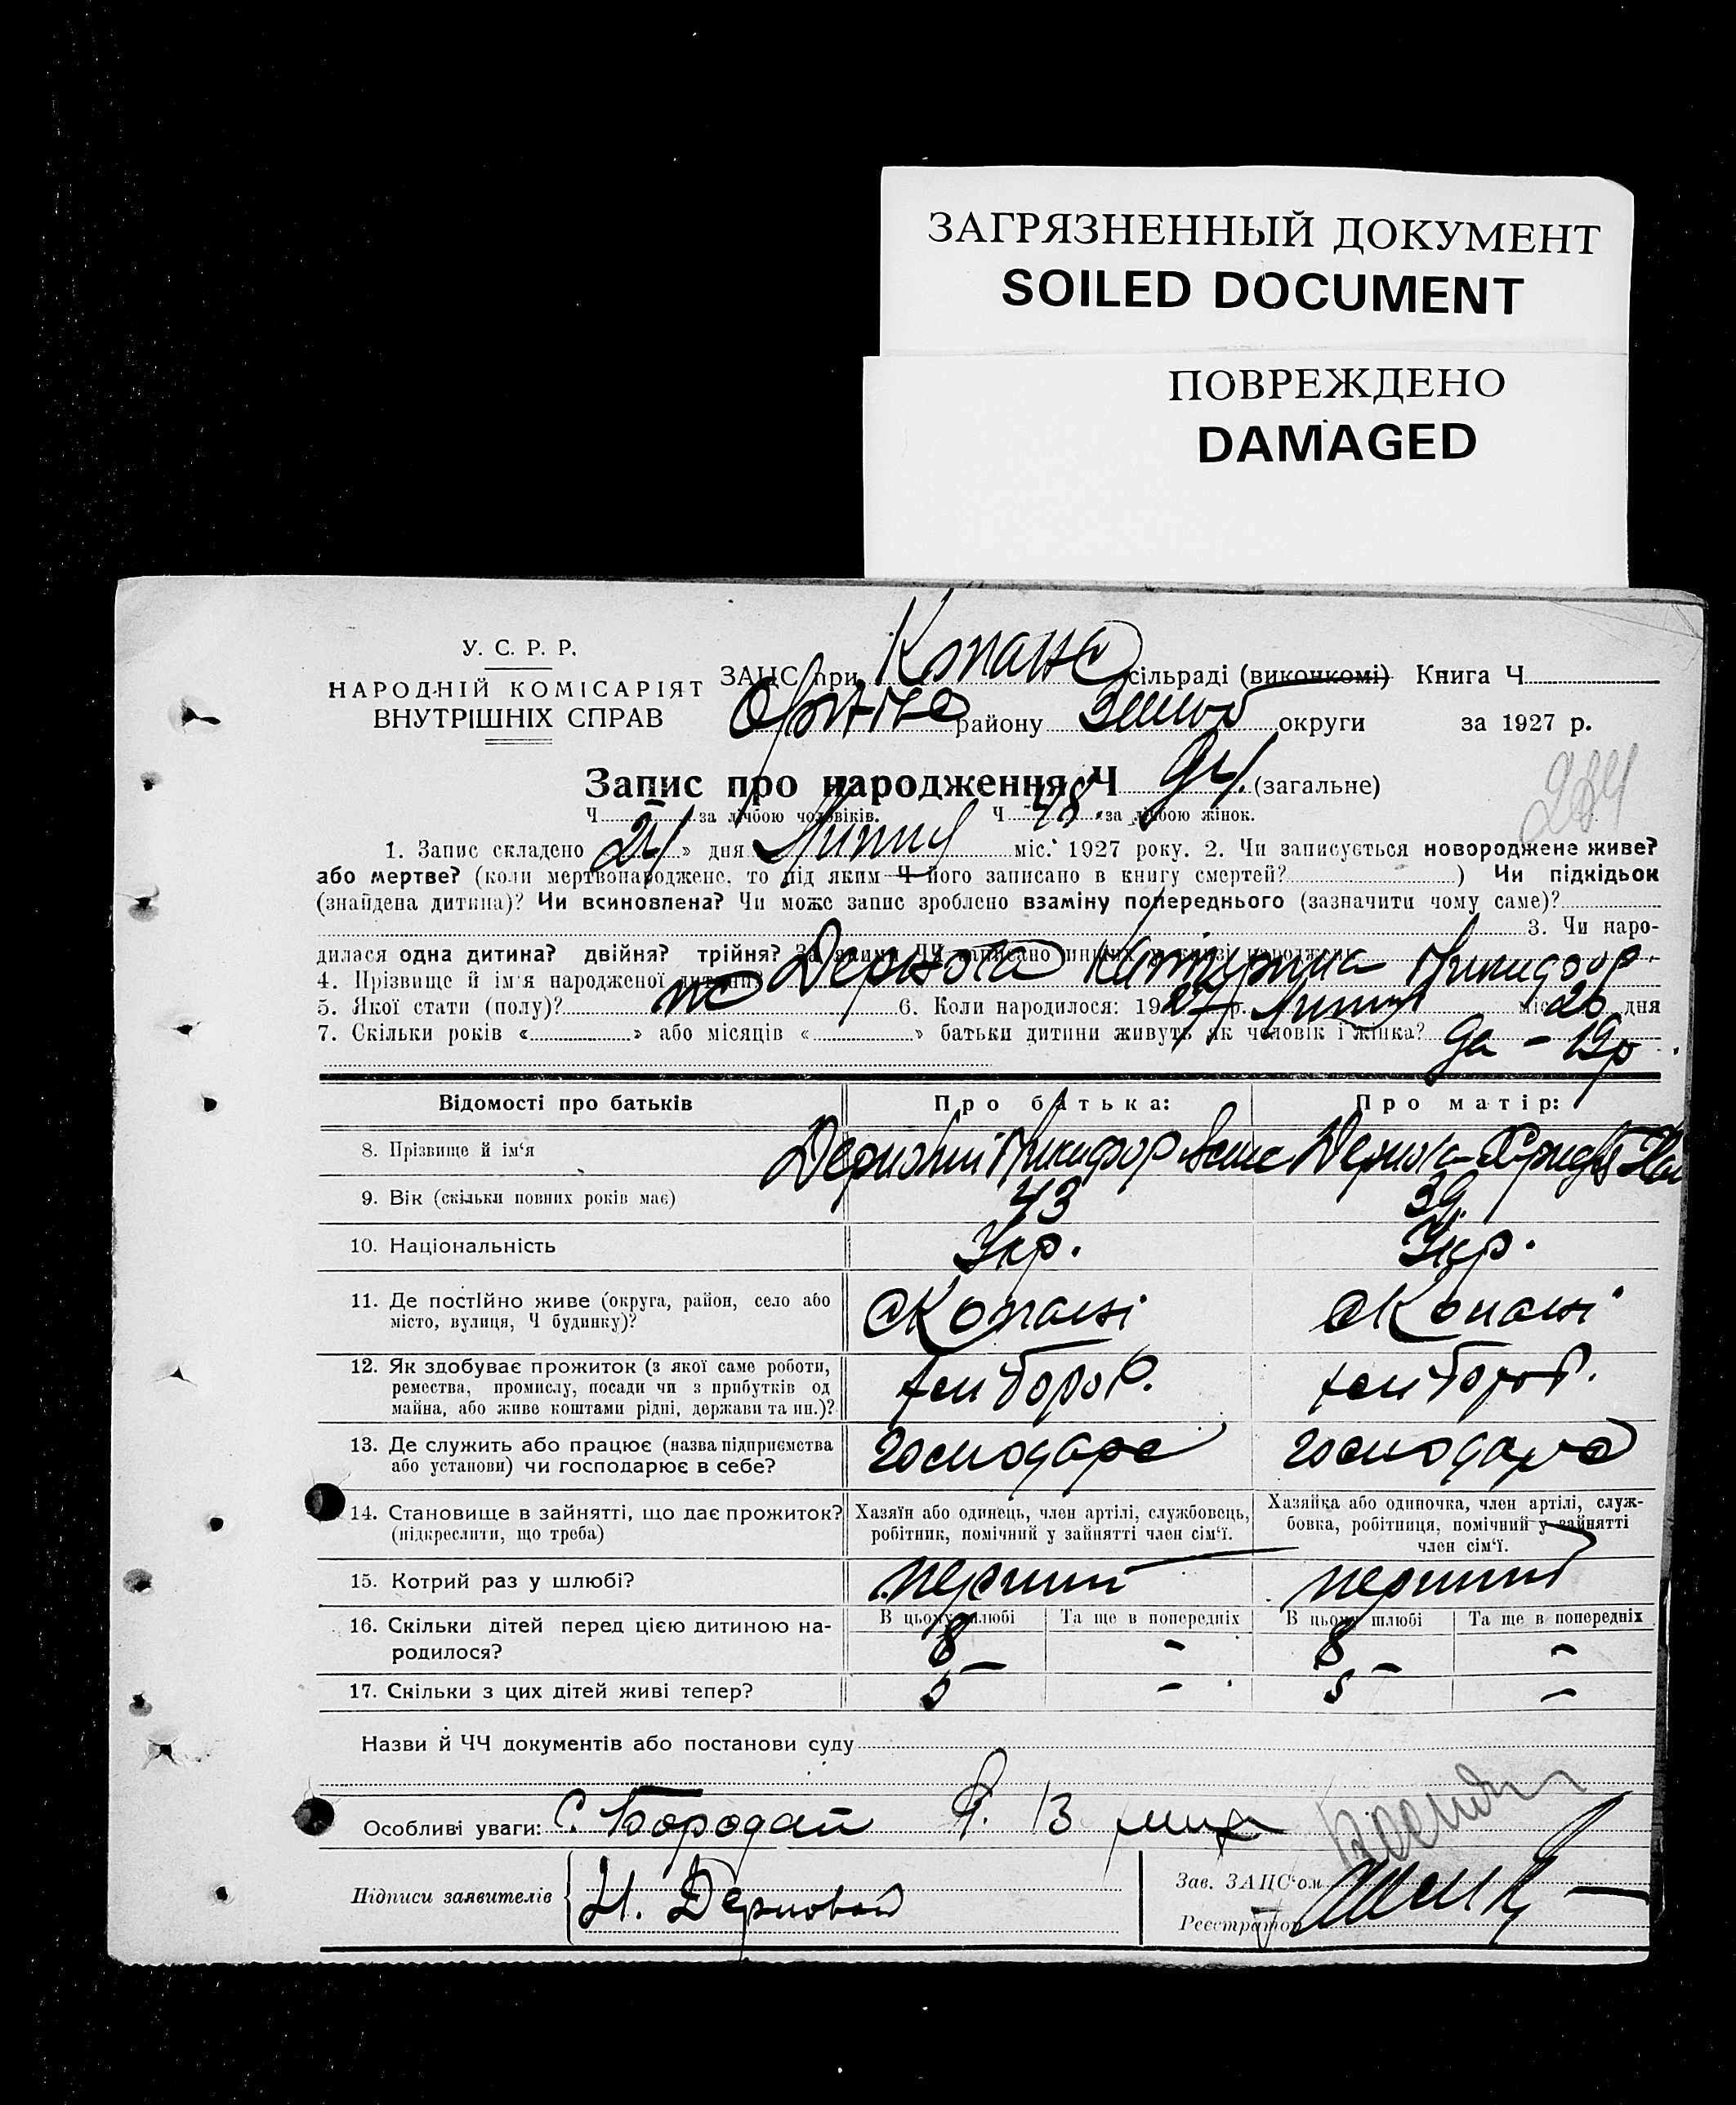 ЗАГРЯЗНЕННЫЙ ДОКУМЕНТ
SOILED DOCUMENT
ПОВРЕЖДЕНО
DAMAGED
У. С. Р. Р.
НАРОДНІЙ КОМІСАРІЯТ
ВНУТРІШНІХ СПРАВ
ЗАЦС при сільраді (виконкомі) Книга Ч
району округи за 1927 р.
Запис про народження Ч (загальне)
Ч – за лічбою чоловіків. Ч 48 за лічбою жінок.
1. Запис складено « » дня Липня міс. 1927 року. 2. Чи записується новороджене живе?
або мертве? (коли мертвонароджене, то під яким Ч його записано в книгу смертей? ) Чи підкідьок
(знайдена дитина)? Чи всиновлена? Чи може запис зроблено взаміну попереднього (зазначити чому саме)?
3. Чи наро-
дилася одна дитина? двійня? трійня? За якими ЧЧ записано инших в книзі народжень
4. Прізвище й ім'я народженої дитини?
5. Якої стати (полу)? 6. Коли народилося: 1927 р. Липня міс. 20 дня
7. Скільки років « » або місяців « » батьки дитини живуть як чоловік і жінка? да – 19р.
Відомості про батьків Про батька: Про матір:
8. Прізвище й ім'я
9. Вік (скільки повних років має) 43 39
10. Національність Укр. Укр.
11. Де постійно живе (округа, район, село або
місто, вулиця, Ч будинку)? с Копані с Копані
12. Як здобуває прожиток (з якої саме роботи,
ремества, промислу, посади чи з прибутків од
майна, або живе коштами рідні, держави та ин.)? хлібороб. хлібороб.
13. Де служить або працює (назва підприємства
або установи) чи господарює в себе? господарє
14. Становище в зайнятті, що дає прожиток?
(підкреслити, що треба)
Хазяїн або одинець, член артілі, службовець,
робітник, помічний у зайнятті член сім'ї.
Хазяйка або одиночка, член артілі, служ-
бовка, робітниця, помічний у зайнятті
член сім'ї.
15. Котрий раз у шлюбі? перший перший
В цьому шлюбі Та ще в попередніх В цьому шлюбі Та ще в попередніх
16. Скільки дітей перед цією дитиною на-
родилося? 8 – 8 –
17. Скільки з цих дітей живі тепер? 5 – 5 –
Назви й ЧЧ документів або постанови суду
Особливі уваги: С. Бородай
Підписи заявителів Н. Дерновой
Зав. ЗАЦС'ом
Реєстратор